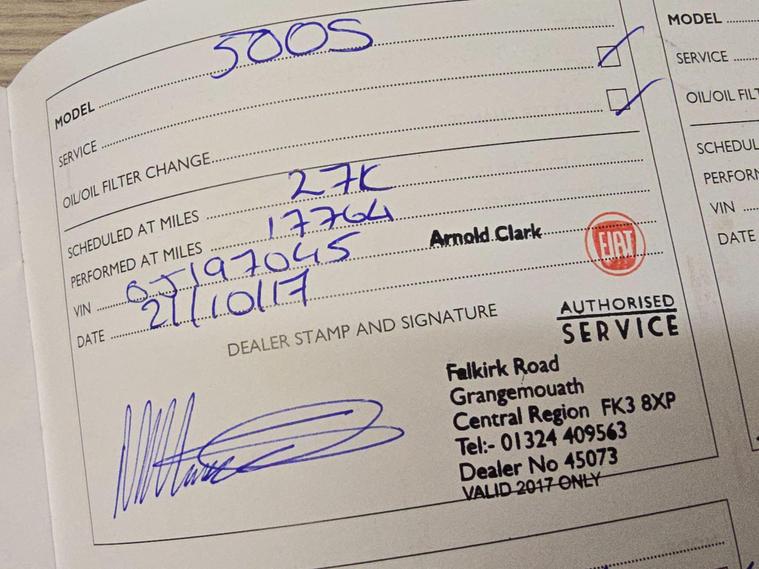 MODEL 500S
SERVICE
OIL/OIL FILTER CHANGE
SCHEDULED AT MILES 27K
PERFORMED AT MILES 17764
VIN 0J197045
DATE 21/10/17
DEALER STAMP AND SIGNATURE
Arnold Clark
FIAT
AUTHORISED
SERVICE
Falkirk Road
Grangemouath
Central Region FK3 8XP
Tel:- 01324 409563
Dealer No 45073
VALID 2017 ONLY
MODEL
SERVICE
OIL/OIL FILT
SCHEDUL
PERFORM
VIN
DATE